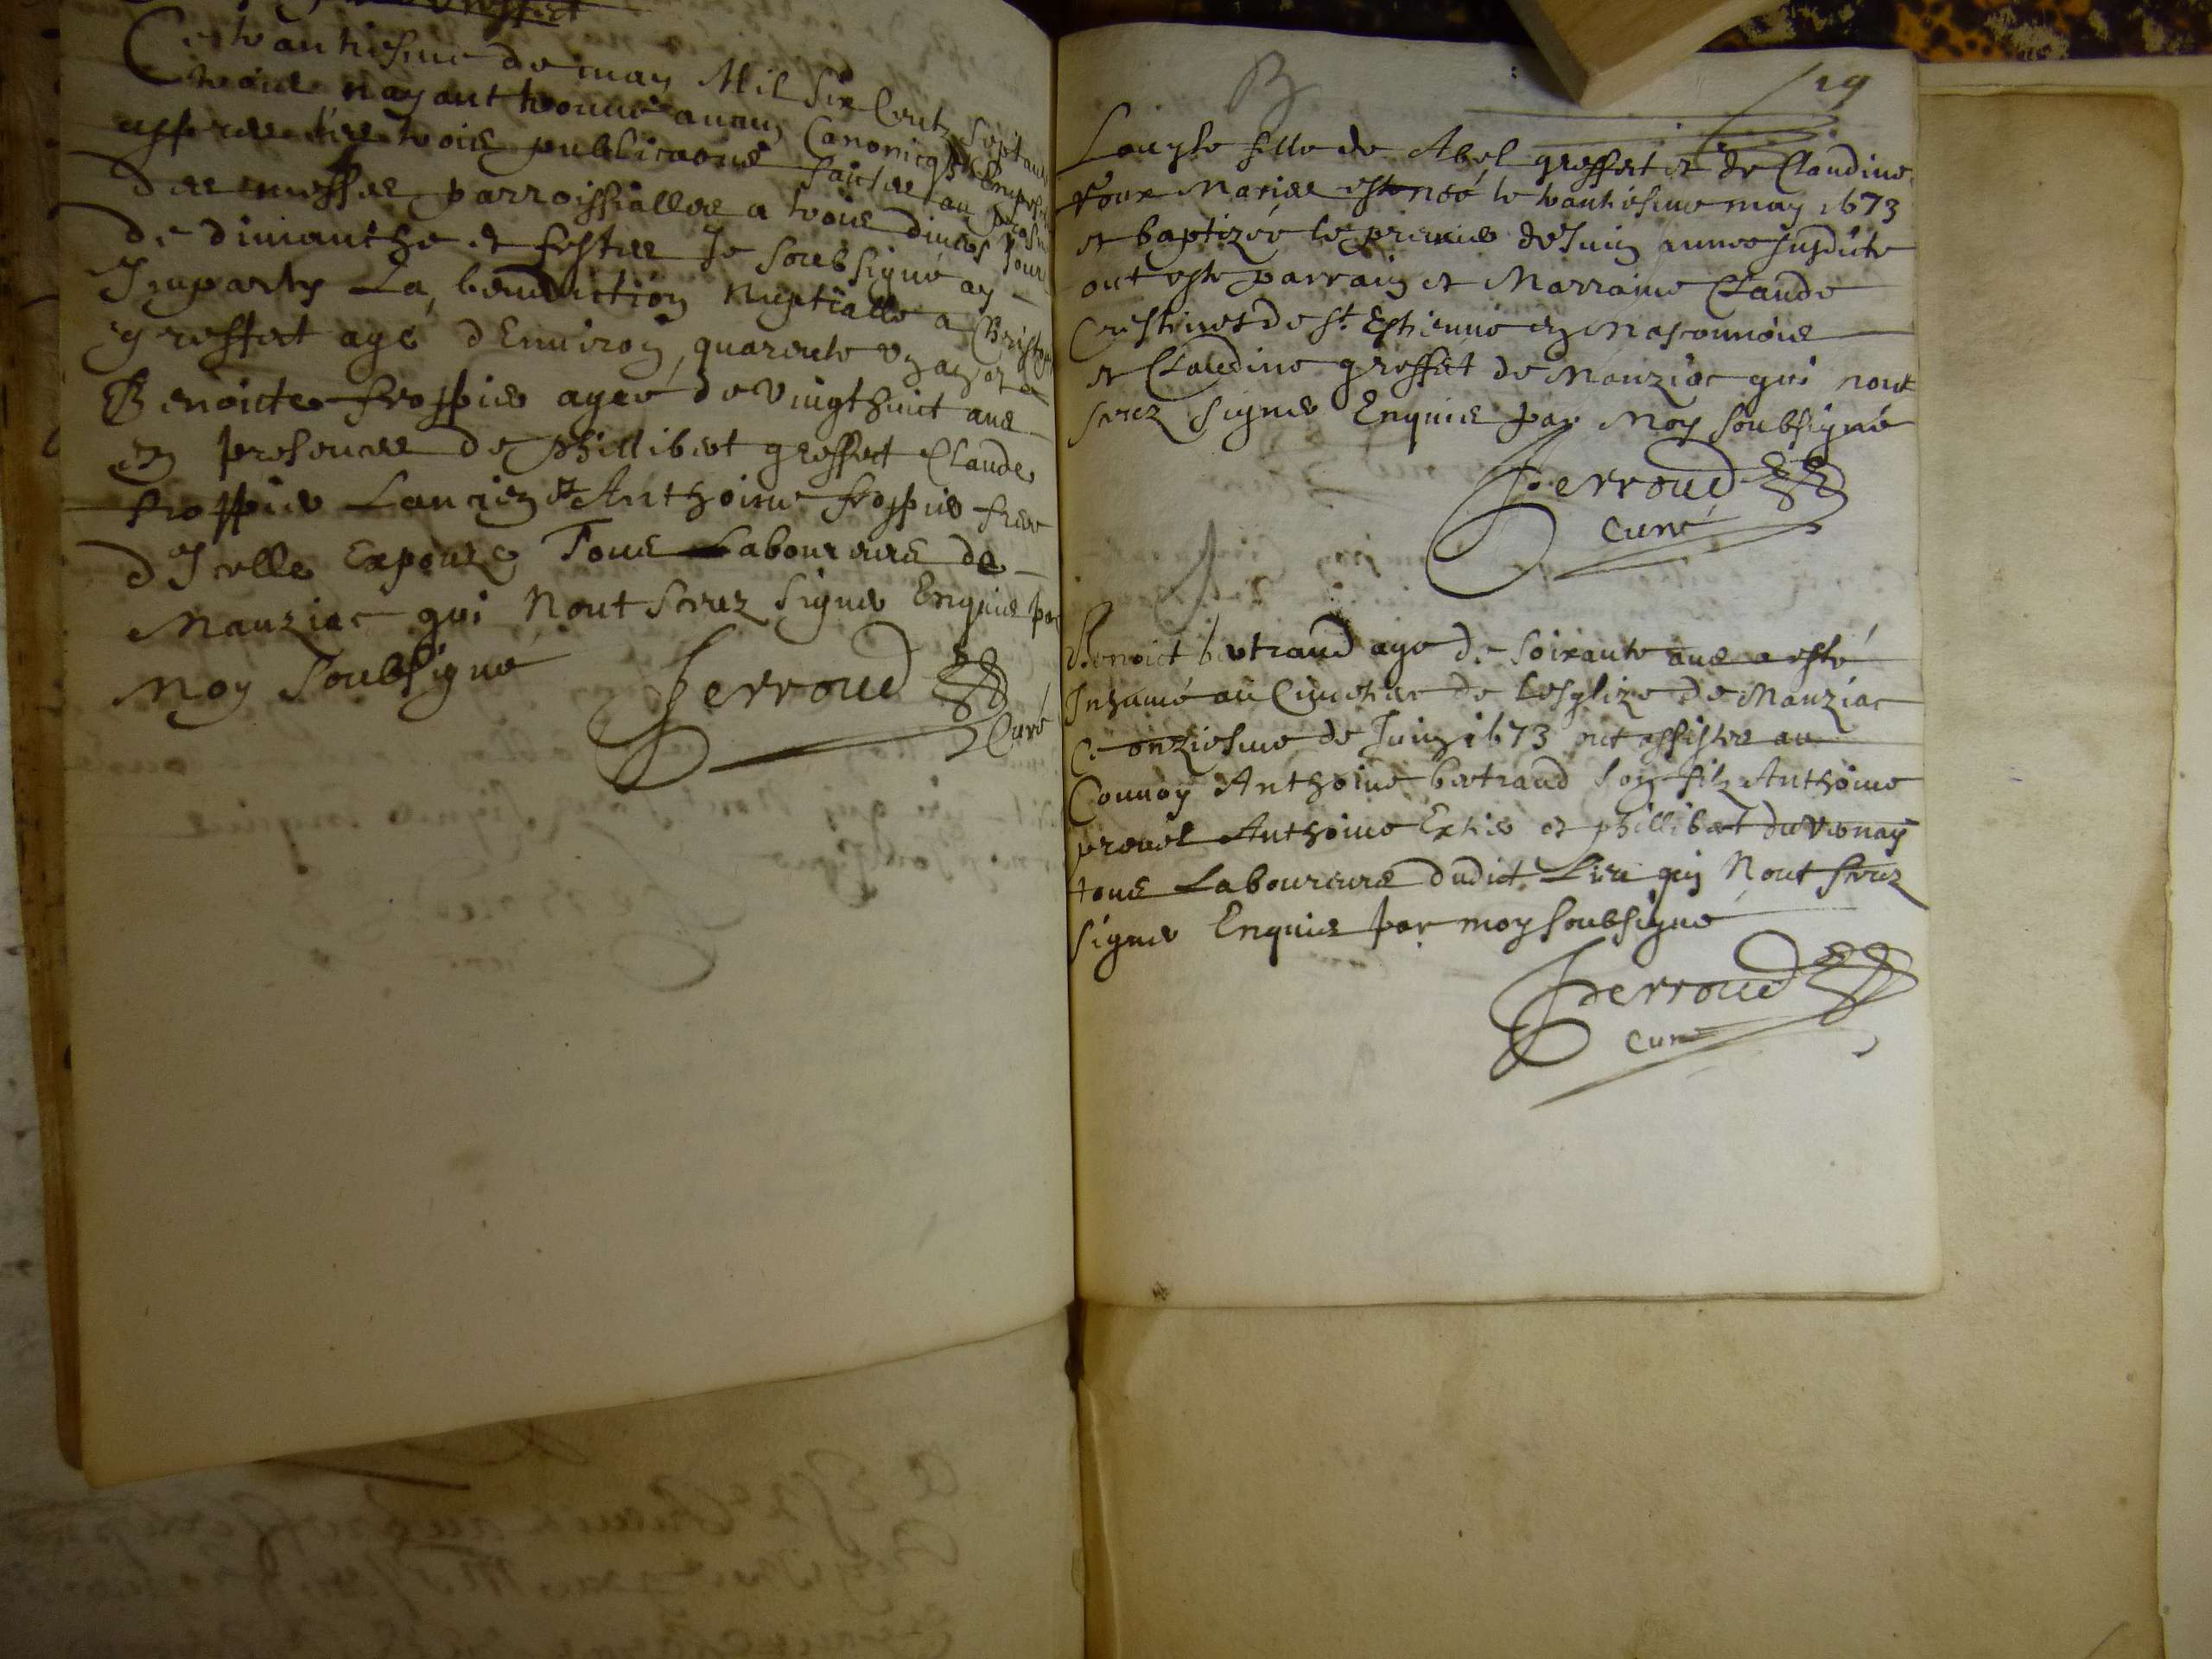 Ce trantiesme de may Mil Six Centz Septante
trois nayant trouvé aucun Canonicq
appres les trois publicaons faictes au prosne
des messes parroissialles a trois divers Jours
de dimanche et festes Je soubsigné ay
Imparty La benediction Nuptialle a
greffet agé dEnviron quarente un an et a
Benoicte froppier ageé de vingt huict ans
En presences de phillibert greffet Claude
froppier Lancien et Anthoine froppier frere
dIcelle Expouze Tous Laboureurs de
Manziac qui Nont sceuz signer Enquis par
Moy Soubsigné
Perroud
Curé
B
29
fille de Abel greffet et de Claudine
Roux Maries est neé le trantiesme may 1673
et baptizeé le premier de Juin annee susdicte
ont este parrain et Marraine Claude
de St Estienne en Masconnois
et Claudine greffet de Manziac qui nont
sceuz signer Enquis par Moy soubsigné
Perroud
curé
Benoict bertrand agé de soixante ans a esté
Inhumé au Cimetiere de Lesglize de Manziac
Ce onziesme de Juin 1673 ont assistes au
Convoy Anthoine bertrand son filz Anthoine
prevel Anthoine Extier et phillibert du vernay
tous Laboureurs dudict Lieu qui Nont sceuz
signer Enquis par moy soubsigné
Perroud
curé